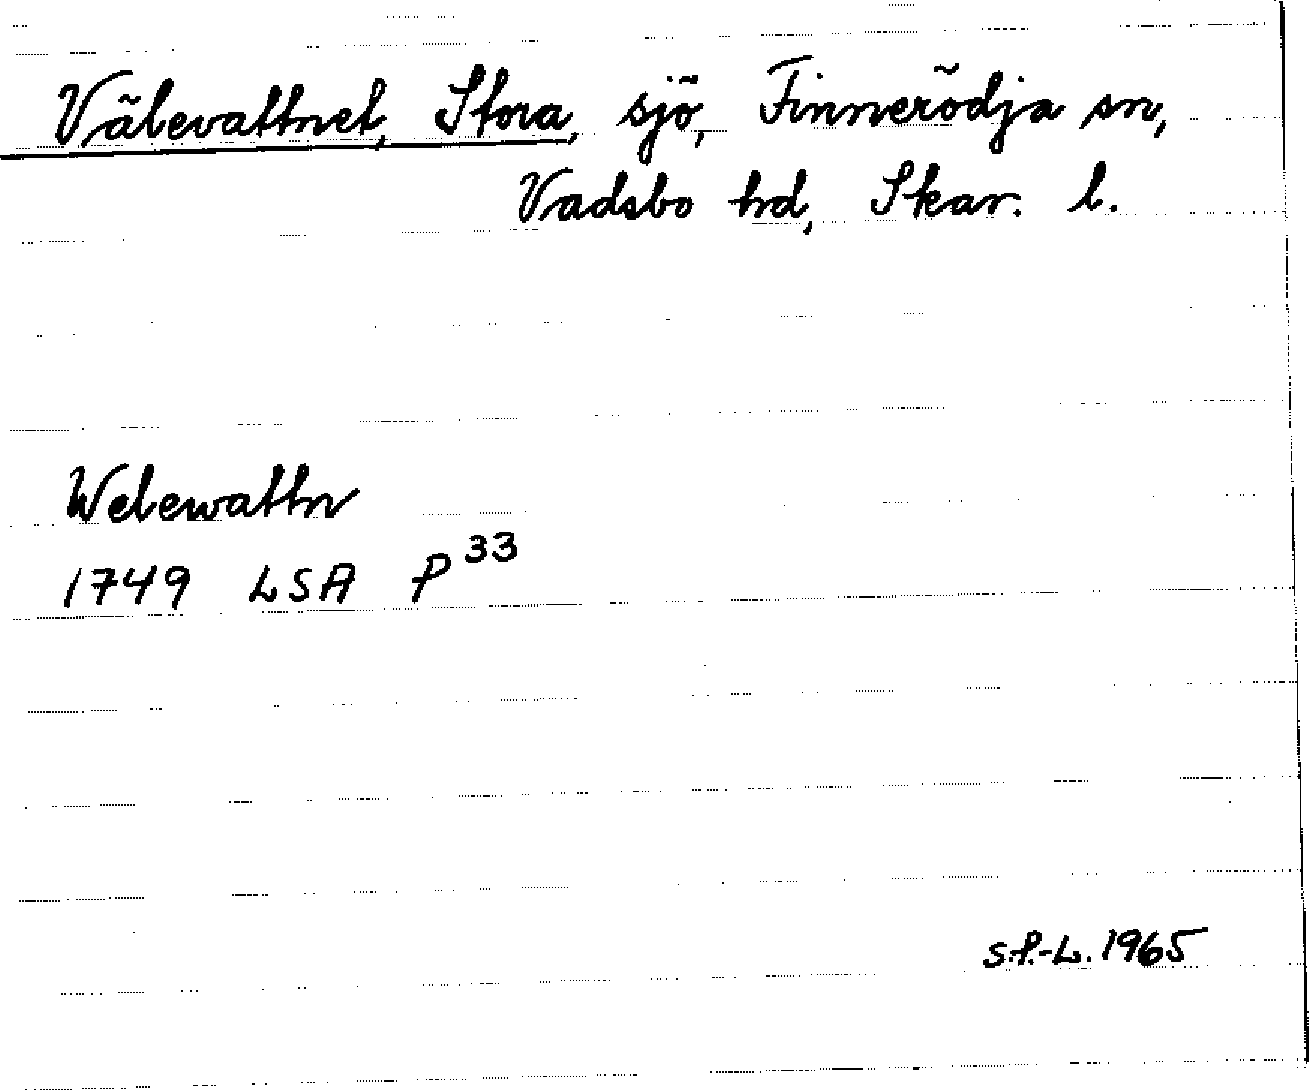 Välevattnet, Stora, sjö, Finnerödja sn,
Vadsbo hd, Skar. l.
Welewattn
1749 LSA P33
S.P.-L. 1965